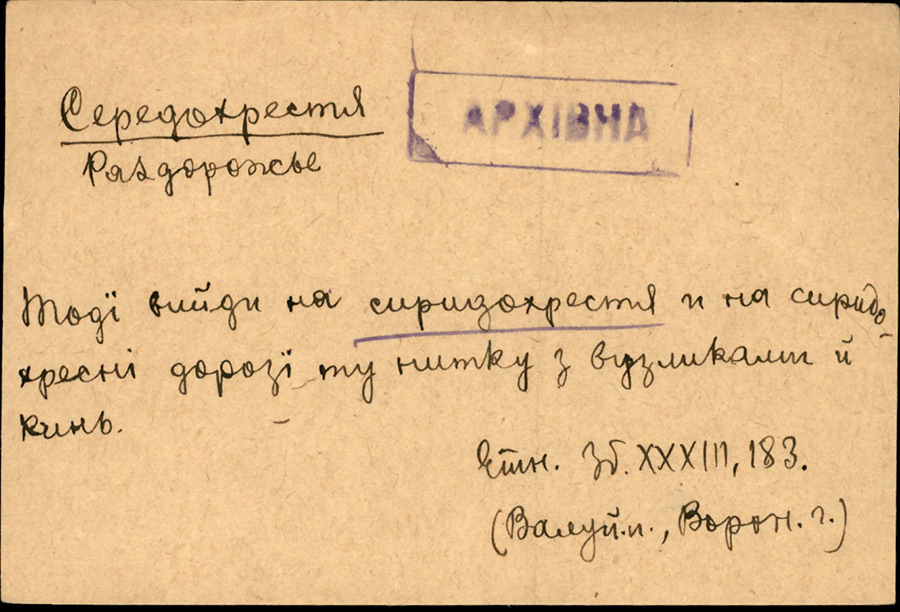 Середохрестя
АРХІВНА
Раздорожье
Тоді вийди на сиридохрестя и на сиридо-
хресні дорозі ту нитку з вузликами й
кинь.
Етн. Зб. XXXIII, 183.
(Валуй.п., Ворон. г.)